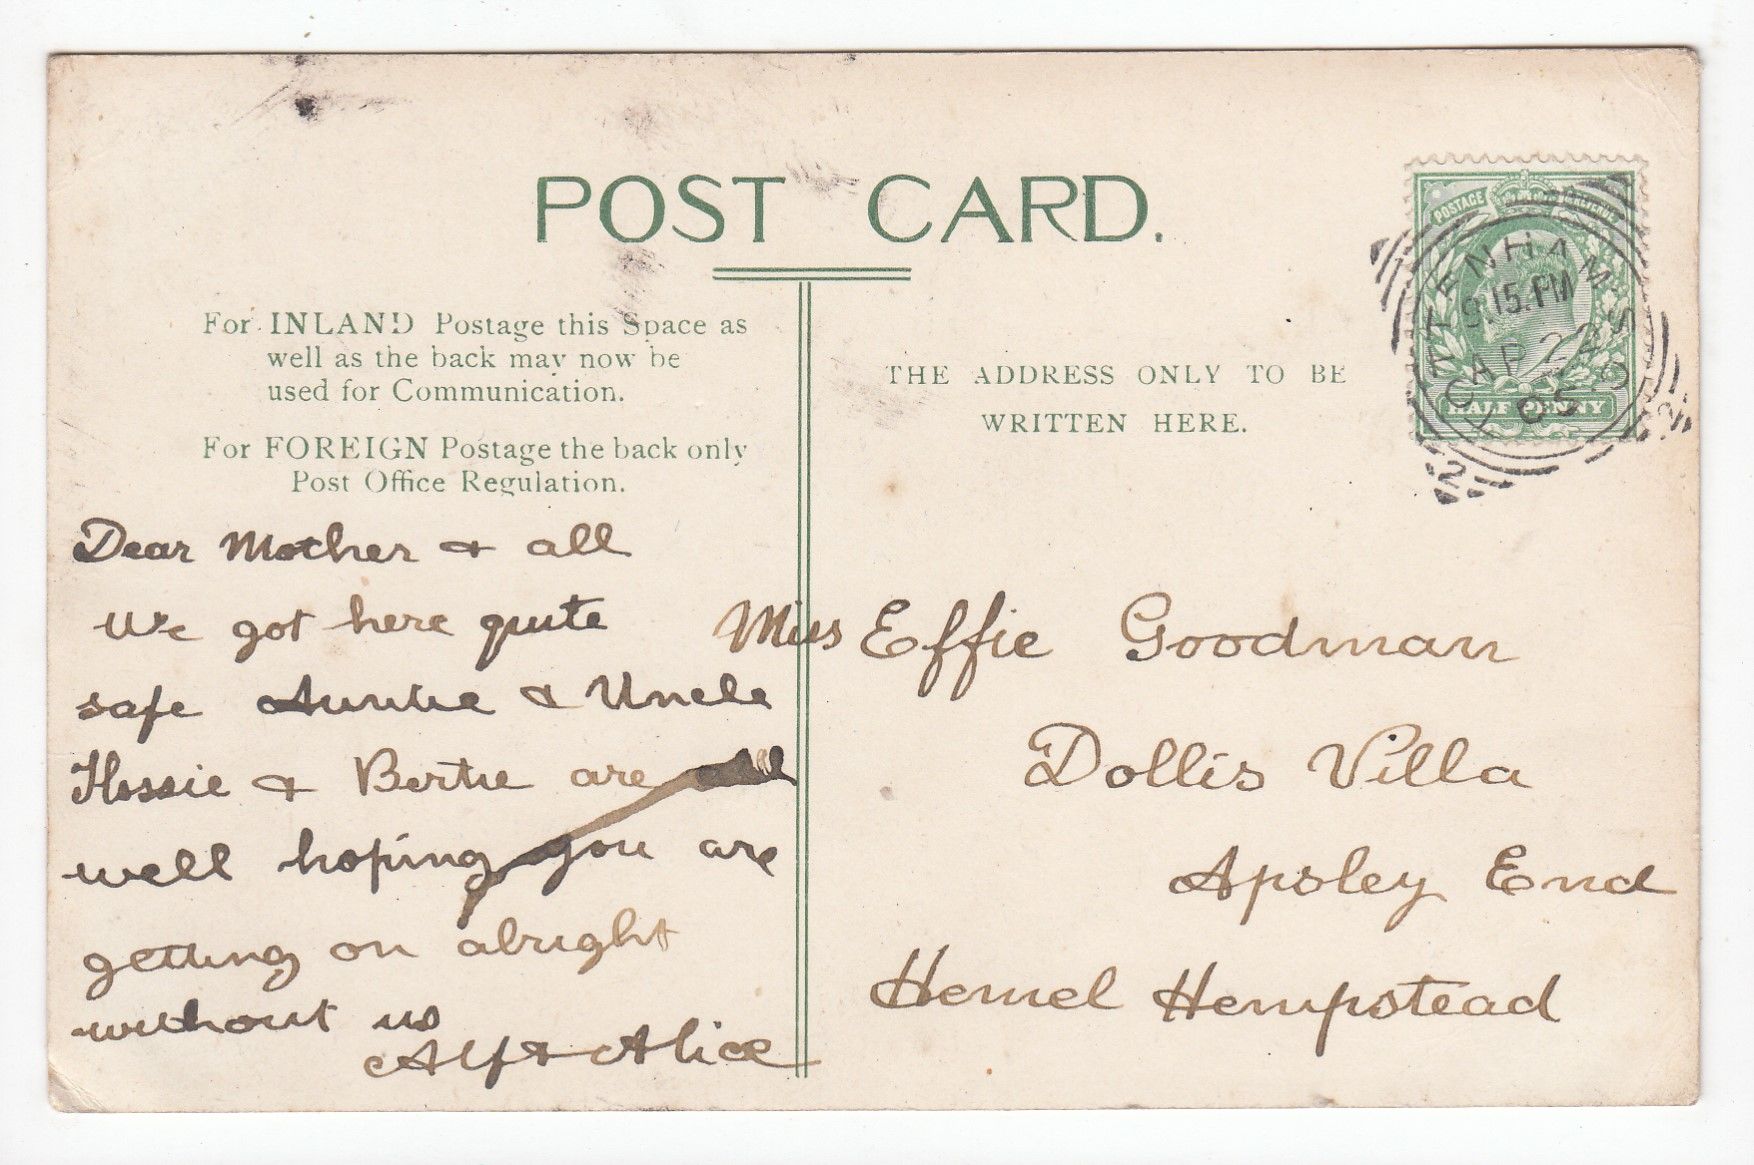 POST CARD.
For INLAND Postage this Space as
well as the back may now be
used for Communication.
For FOREIGN Postage the back only
Post Office Regulation.
THE ADDRESS ONLY TO BE
WRITTEN HERE.
POSTAGE
HALF PENNY
TOTTENHAM. S.O
9.15.PM
AP 22
05
2
2
Dear Mother & all
We got here quite
safe Auntie & Uncle
Flossie & Bertie are all
well hoping you are
getting on alright
without us
Alf & Alice
Miss Effie Goodman
Dollis Villa
Apsley End
Hemel Hempstead